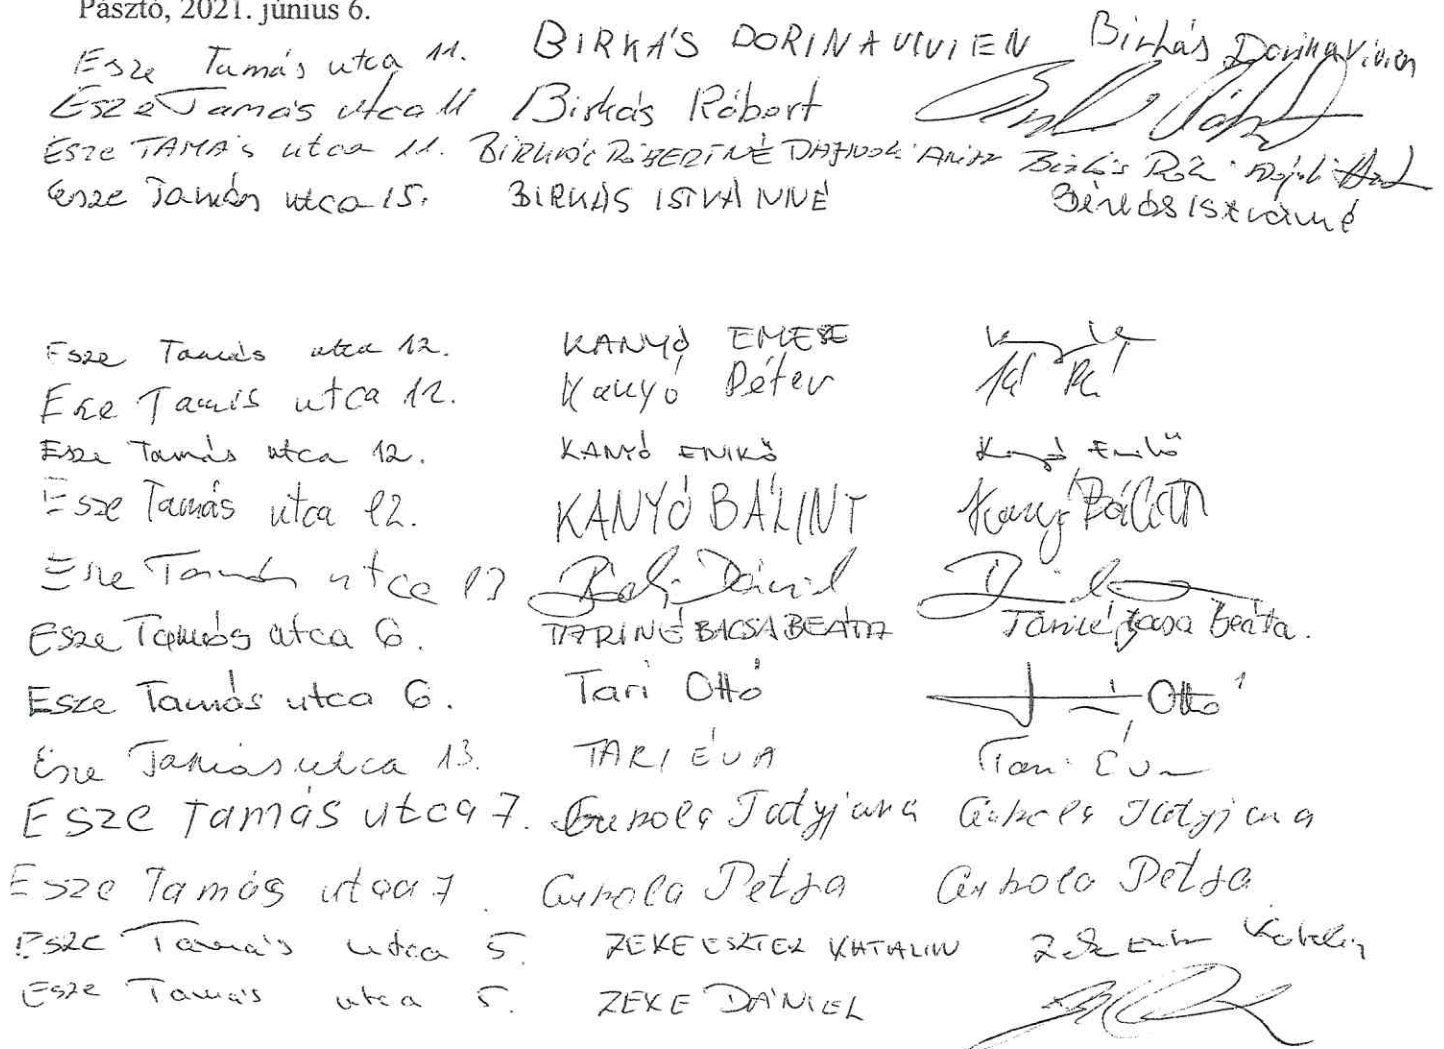 Pásztó, 2021. június 6.
Esze Tamás utca 11. BIRKÁS DORINA VIVIEN Birkás Dorina Vivien
Esze Tamás utca 11 Birkás Róbert
Esze TAMÁS utca 11. BIRKÁS RÓBERTNÉ Anita Birkás
Esze Tamás utca 15. BIRKÁS ISTVÁNNÉ Birkás Istvánné
Esze Tamás utca 12. KANYÓ EMESE
Esze Tamás utca 12. Kanyó Péter
Esze Tamás utca 12. KANYÓ ENIKŐ Kanyó Enikő
Esze Tamás utca 12. KANYÓ BÁLINT Kanyó Bálint
Esze Tamás utca Dávid
Esze Tamás utca 6. TARINÉ BACSA BEÁTA Tariné Bacsa Beáta.
Esze Tamás utca 6. Tari Ottó Ottó
Esze Tamás utca 13. TARI ÉVA Tari Éva
Esze Tamás utca 7. Gurola Tatyjana Tatyjana
Esze Tamás utca 7. Gurola Petra Petra
Esze Tamás utca 5. ZEKE ESZTER KATALIN Katalin
Esze Tamás utca 5. ZEKE DÁNIEL